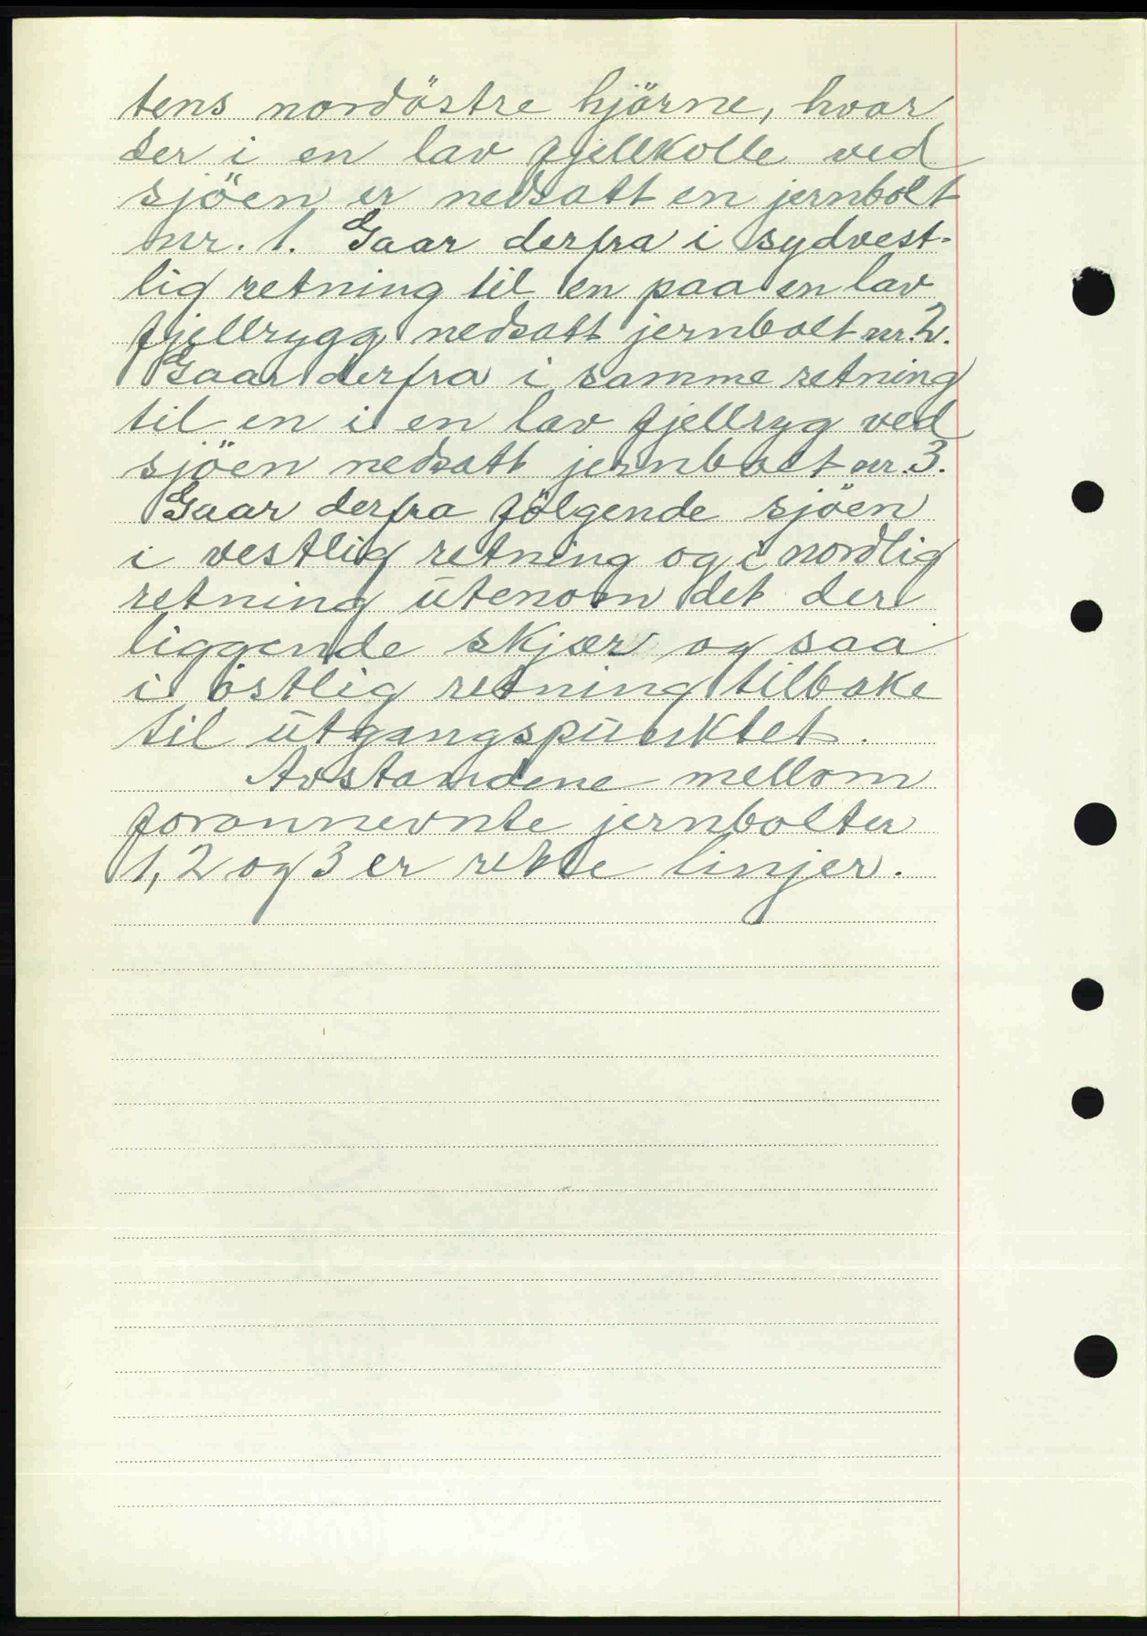 tens nordöstre hjörne, hvor
der i en lav fjellkolle ved
sjöen er nedsatt en jernbolt
nr. 1. Gaar derfra i sydvest-
lig retning til en paa en lav
fjellrygg nedsatt jernbolt nr. 2.
Gaar derfra i samme retning
til en i en lav fjellryg ved
sjöen nedsatt jernbolt nr. 3.
Gaar derfra fölgende sjöen
i vestlig retning og i nordlig
retning utenom det der
liggende skjær og saa
i östlig retning tilbake
til utgangspunktet.
Avstandene mellom
forannevnte jernbolter
1, 2 og 3 er rette linjer.